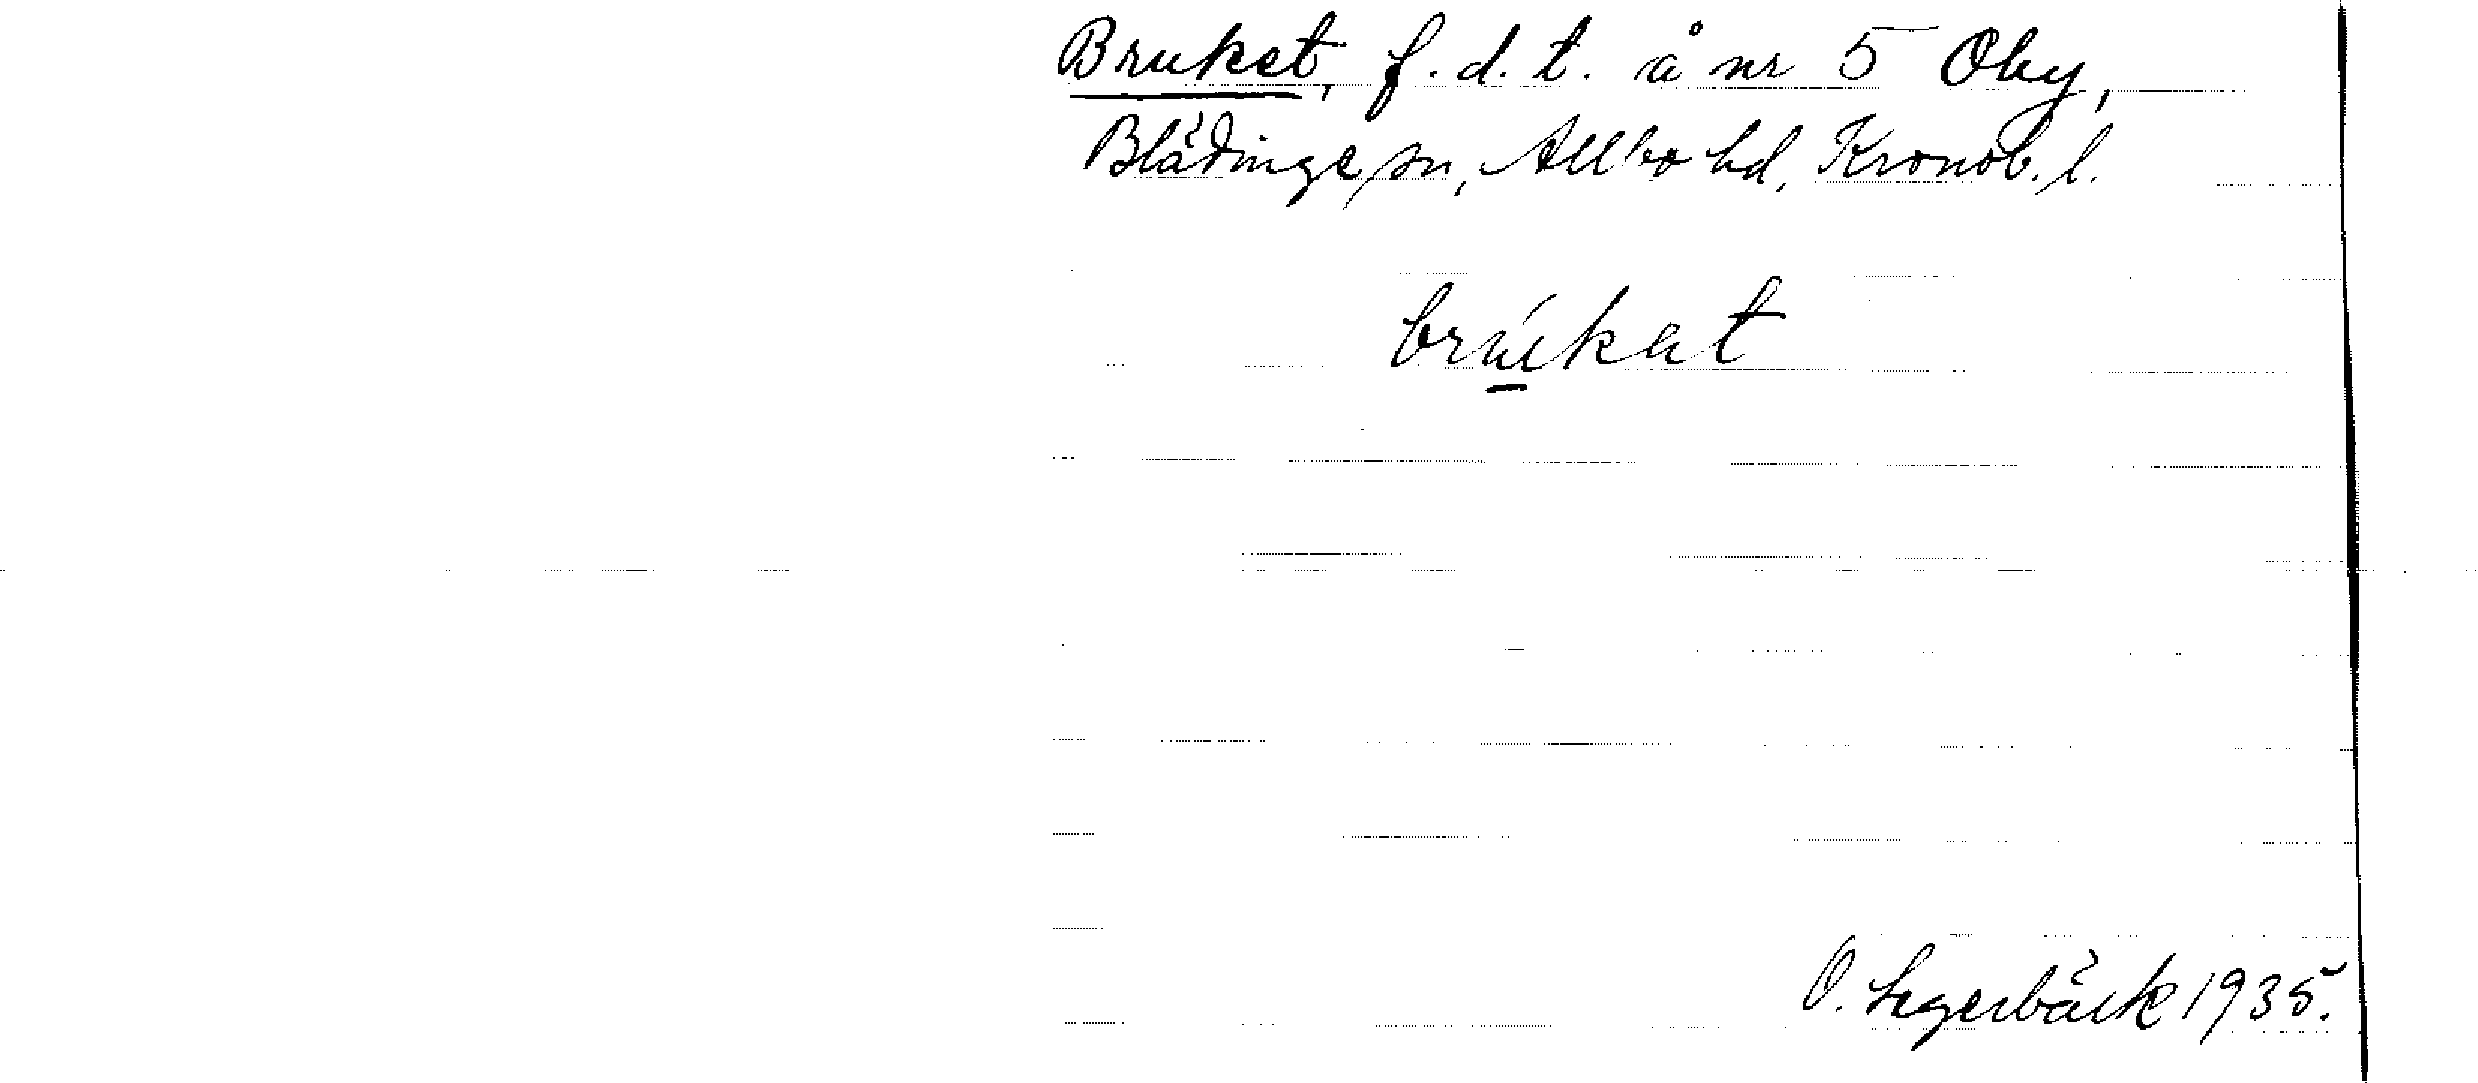 Bruket, f. d. t. å nr 5 Oby,
Blädinge sn, Allbo hd, Kronob. l.
brúkat
O. Segerbäck 1935.